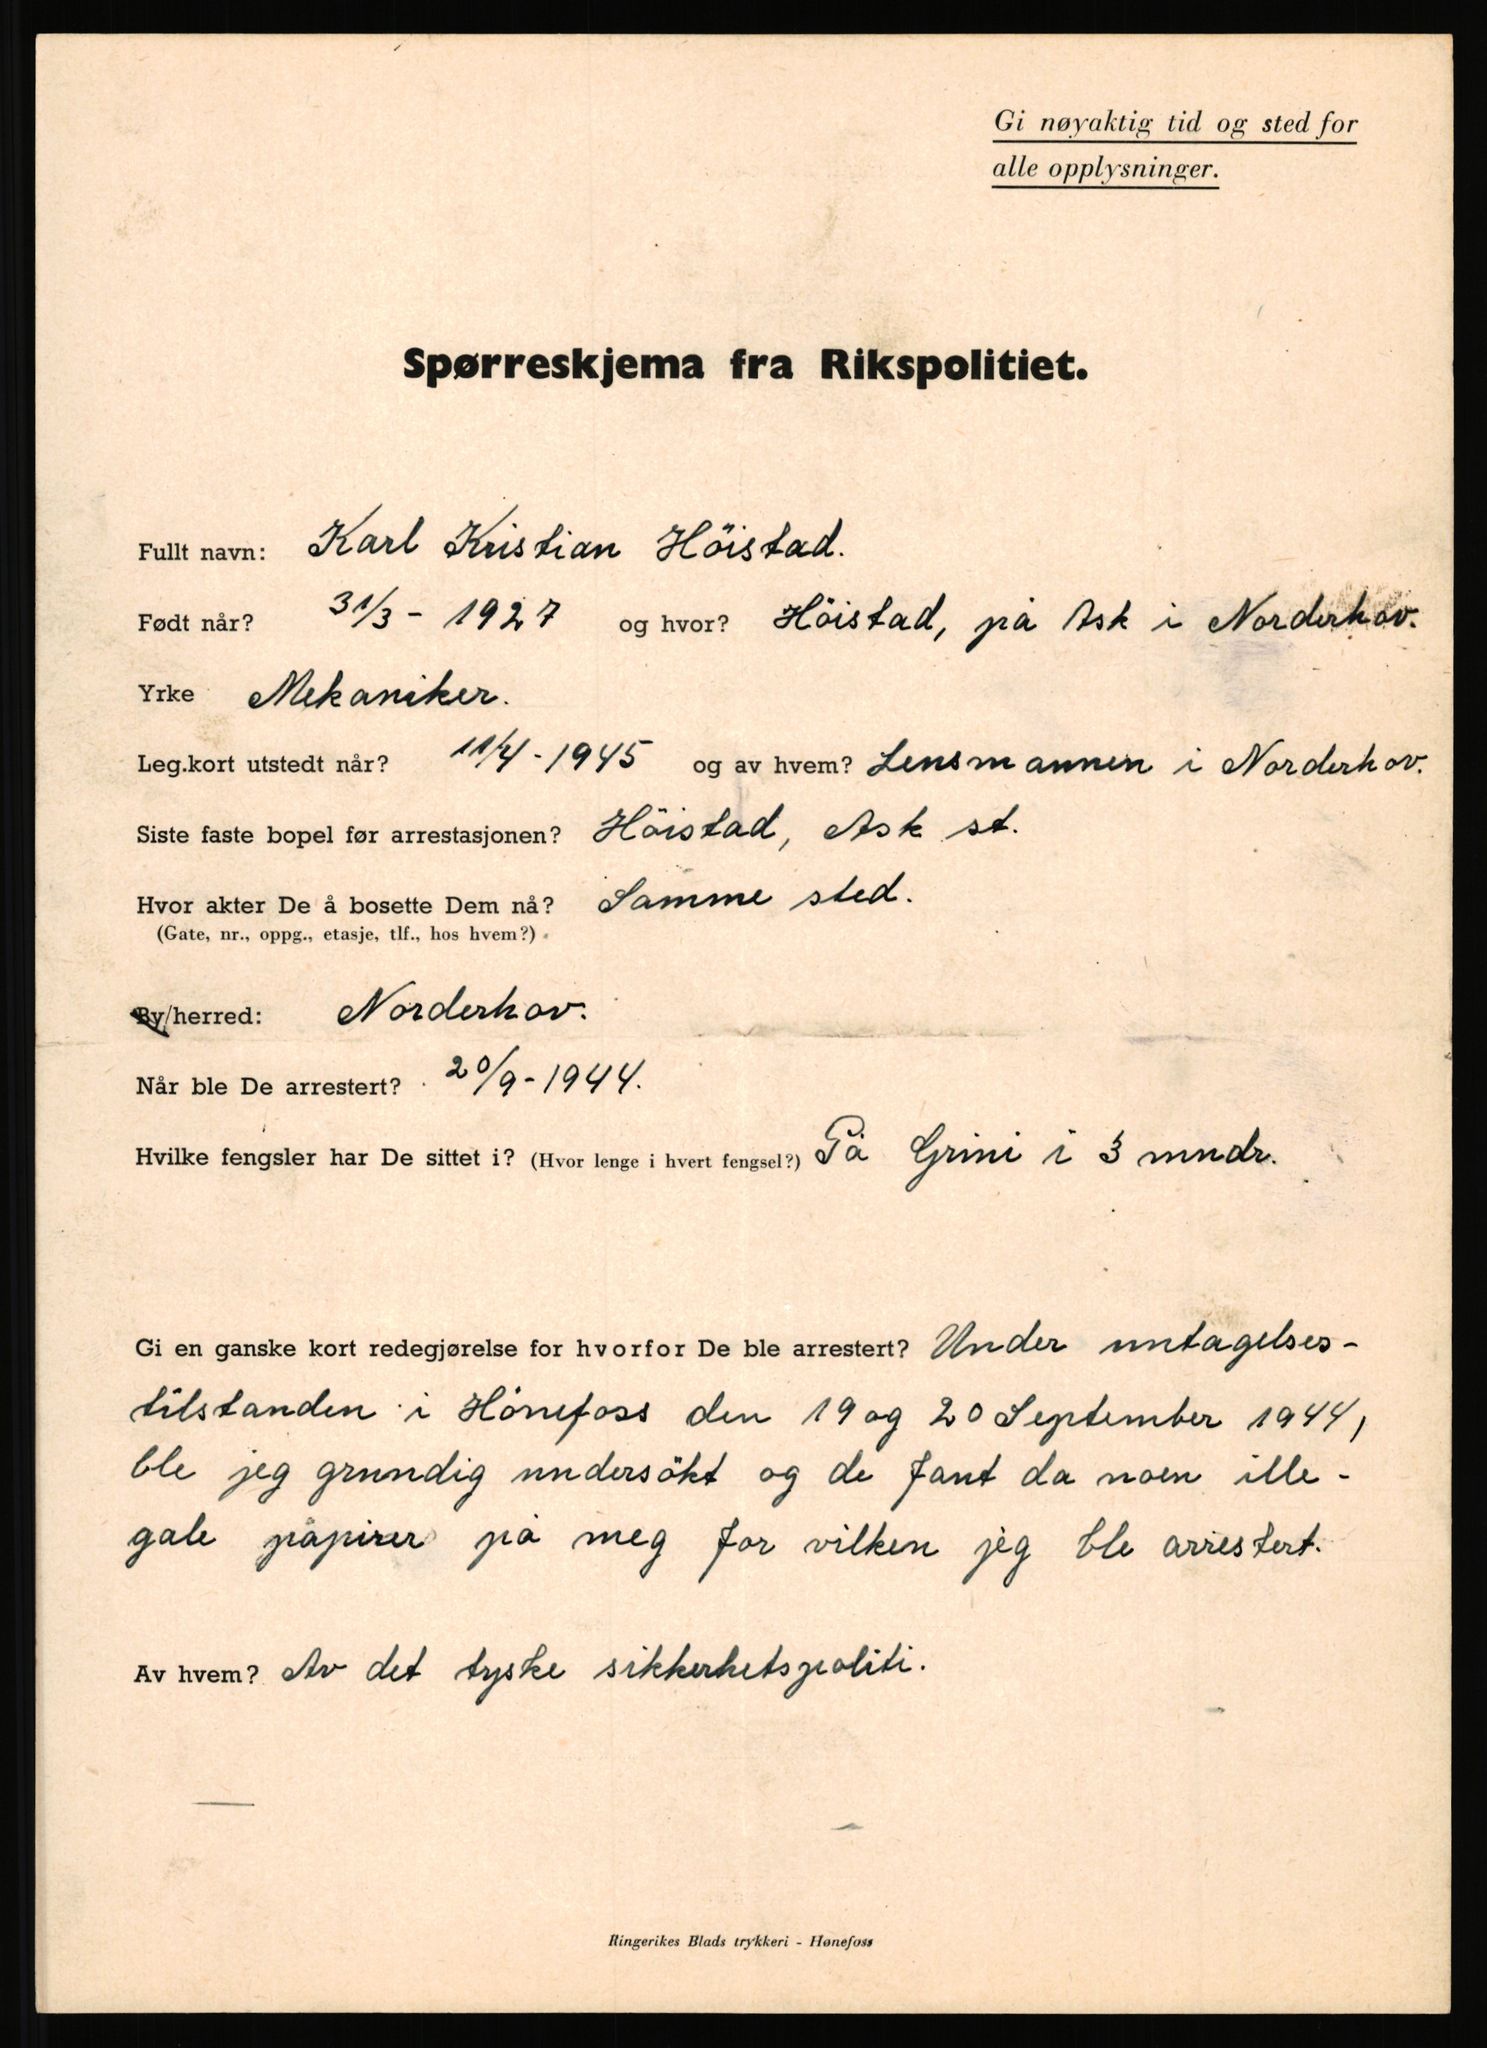 Gi nøyaktig tid og sted for
alle opplysninger.
Spørreskjema fra Rikspolitiet.
Fullt navn: Karl Kristian Höistad.
Født når? 31/3 - 1927 og hvor? Höistad, på Ask i Norderhov.
Yrke Mekaniker.
Leg.kort utstedt når? 11/4 - 1945 og av hvem? Lensmannen i Norderhov.
Siste faste bopel før arrestasjonen? Höistad, Ask st.
Hvor akter De å bosette Dem nå? Samme sted.
(Gate, nr., oppg., etasje, tlf., hos hvem?)
By/herred: Norderhov.
Når ble De arrestert? 20/9 - 1944.
Hvilke fengsler har De sittet i? (Hvor lenge i hvert fengsel?) På Grini i 3 mndr.
Gi en ganske kort redegjørelse for hvorfor De ble arrestert? Under untagelses-
tilstanden i Hönefoss den 19 og 20 September 1944,
ble jeg grundig undersökt og de fant da noen ille-
gale papirer på meg for vilken jeg ble arrestert.
Av hvem? Av det tyske sikkerhetspoliti.
Ringerikes Blads trykkeri - Hønefoss